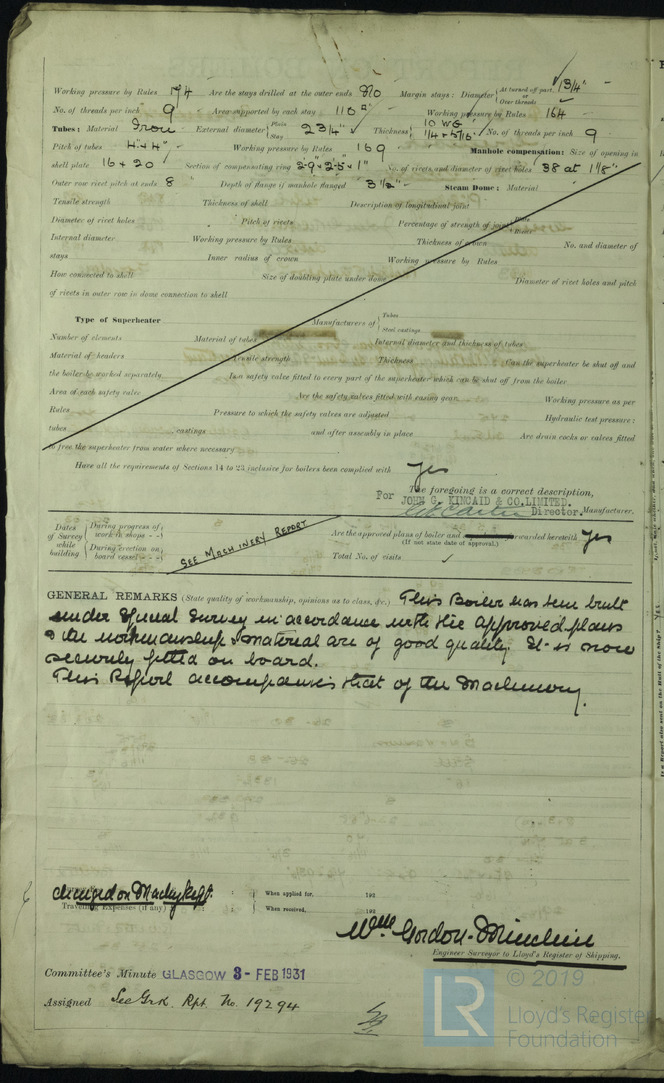 Working pressure by Rules 174 Are the stays drilled at the outer ends No Margin stays: Diameter { At turned off part, 1 3/4" or Over threads
No. of threads per inch 9 Area supported by each stay 110 □" Working pressure by Rules 164
Tubes: Material Iron External diameter { Plain Stay 2 3/4" Thickness { 10 WG 1/4 + 5/16 No. of threads per inch 9
Pitch of tubes 4 + 4" Working pressure by Rules 169 Manhole compensation: Size of opening in
shell plate 16 + 20 Section of compensating ring 2-9" + 2-5" + 1" No. of rivets and diameter of rivet holes 38 at 1 1/8"
Outer row rivet pitch at ends 8 Depth of flange if manhole flanged 3 1/2" Steam Dome: Material
Tensile strength Thickness of shell Description of longitudinal joint
Diameter of rivet holes Pitch of rivets Percentage of strength of joint { Plate Rivets
Internal diameter Working pressure by Rules Thickness of crown No. and diameter of
stays Inner radius of crown Working pressure by Rules
How connected to shell Size of doubling plate under dome Diameter of rivet holes and pitch
of rivets in outer row in dome connection to shell
Type of Superheater Manufacturers of { Tubes Steel castings
Number of elements Material of tubes Internal diameter and thickness of tubes
Material of headers Tensile strength Thickness Can the superheater be shut off and
the boiler be worked separately Is a safety valve fitted to every part of the superheater which can be shut off from the boiler
Area of each safety valve Are the safety valves fitted with easing gear Working pressure as per
Rules Pressure to which the safety valves are adjusted Hydraulic test pressure:
tubes castings and after assembly in place Are drain cocks or valves fitted
to free the superheater from water where necessary
Have all the requirements of Sections 14 to 23 inclusive for boilers been complied with Yes
The foregoing is a correct description,
For JOHN G. KINCAID & CO. LIMITED.
Director. Manufacturer.
Dates of Survey while building { During progress of work in shops - - During erection on board vessel - - - SEE MACHINERY REPORT
Are the approved plans of boiler and forwarded herewith Yes
(If not state date of approval.)
Total No. of visits ✓
GENERAL REMARKS (State quality of workmanship, opinions as to class, &c.) This Boiler has been built
under Special Survey in accordance with the approved plans
& the workmanship & material are of good quality. It is now
securely fitted on board.
This Report accompanies that of the Machinery.
charged on Machy Rept.
Travelling Expenses (if any) When applied for, 192
When received, 192
Wm Gordon-
Engineer Surveyor to Lloyd's Register of Shipping.
Committee's Minute GLASGOW 3 - FEB 1931
Assigned See Grk. Rpt. No. 19294
© 2019
LR Lloyd's Register
Foundation